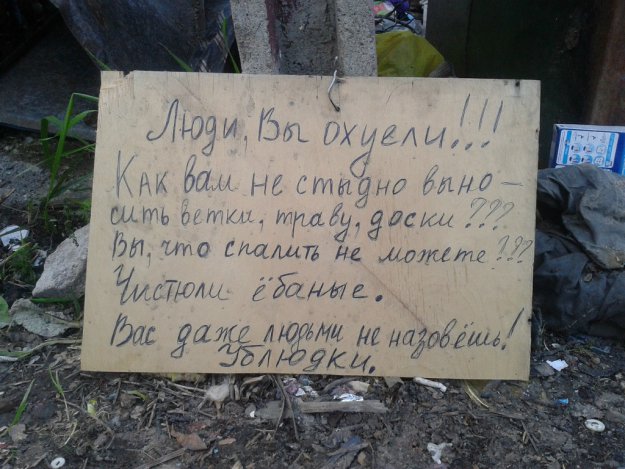 Люди, Вы охуели!!!
Как вам не стыдно выно-
сить ветки, траву, доски???
Вы, что спалить не можете???
Чистюли ёбаные.
Вас даже людьми не назовёшь!
Ублюдки.